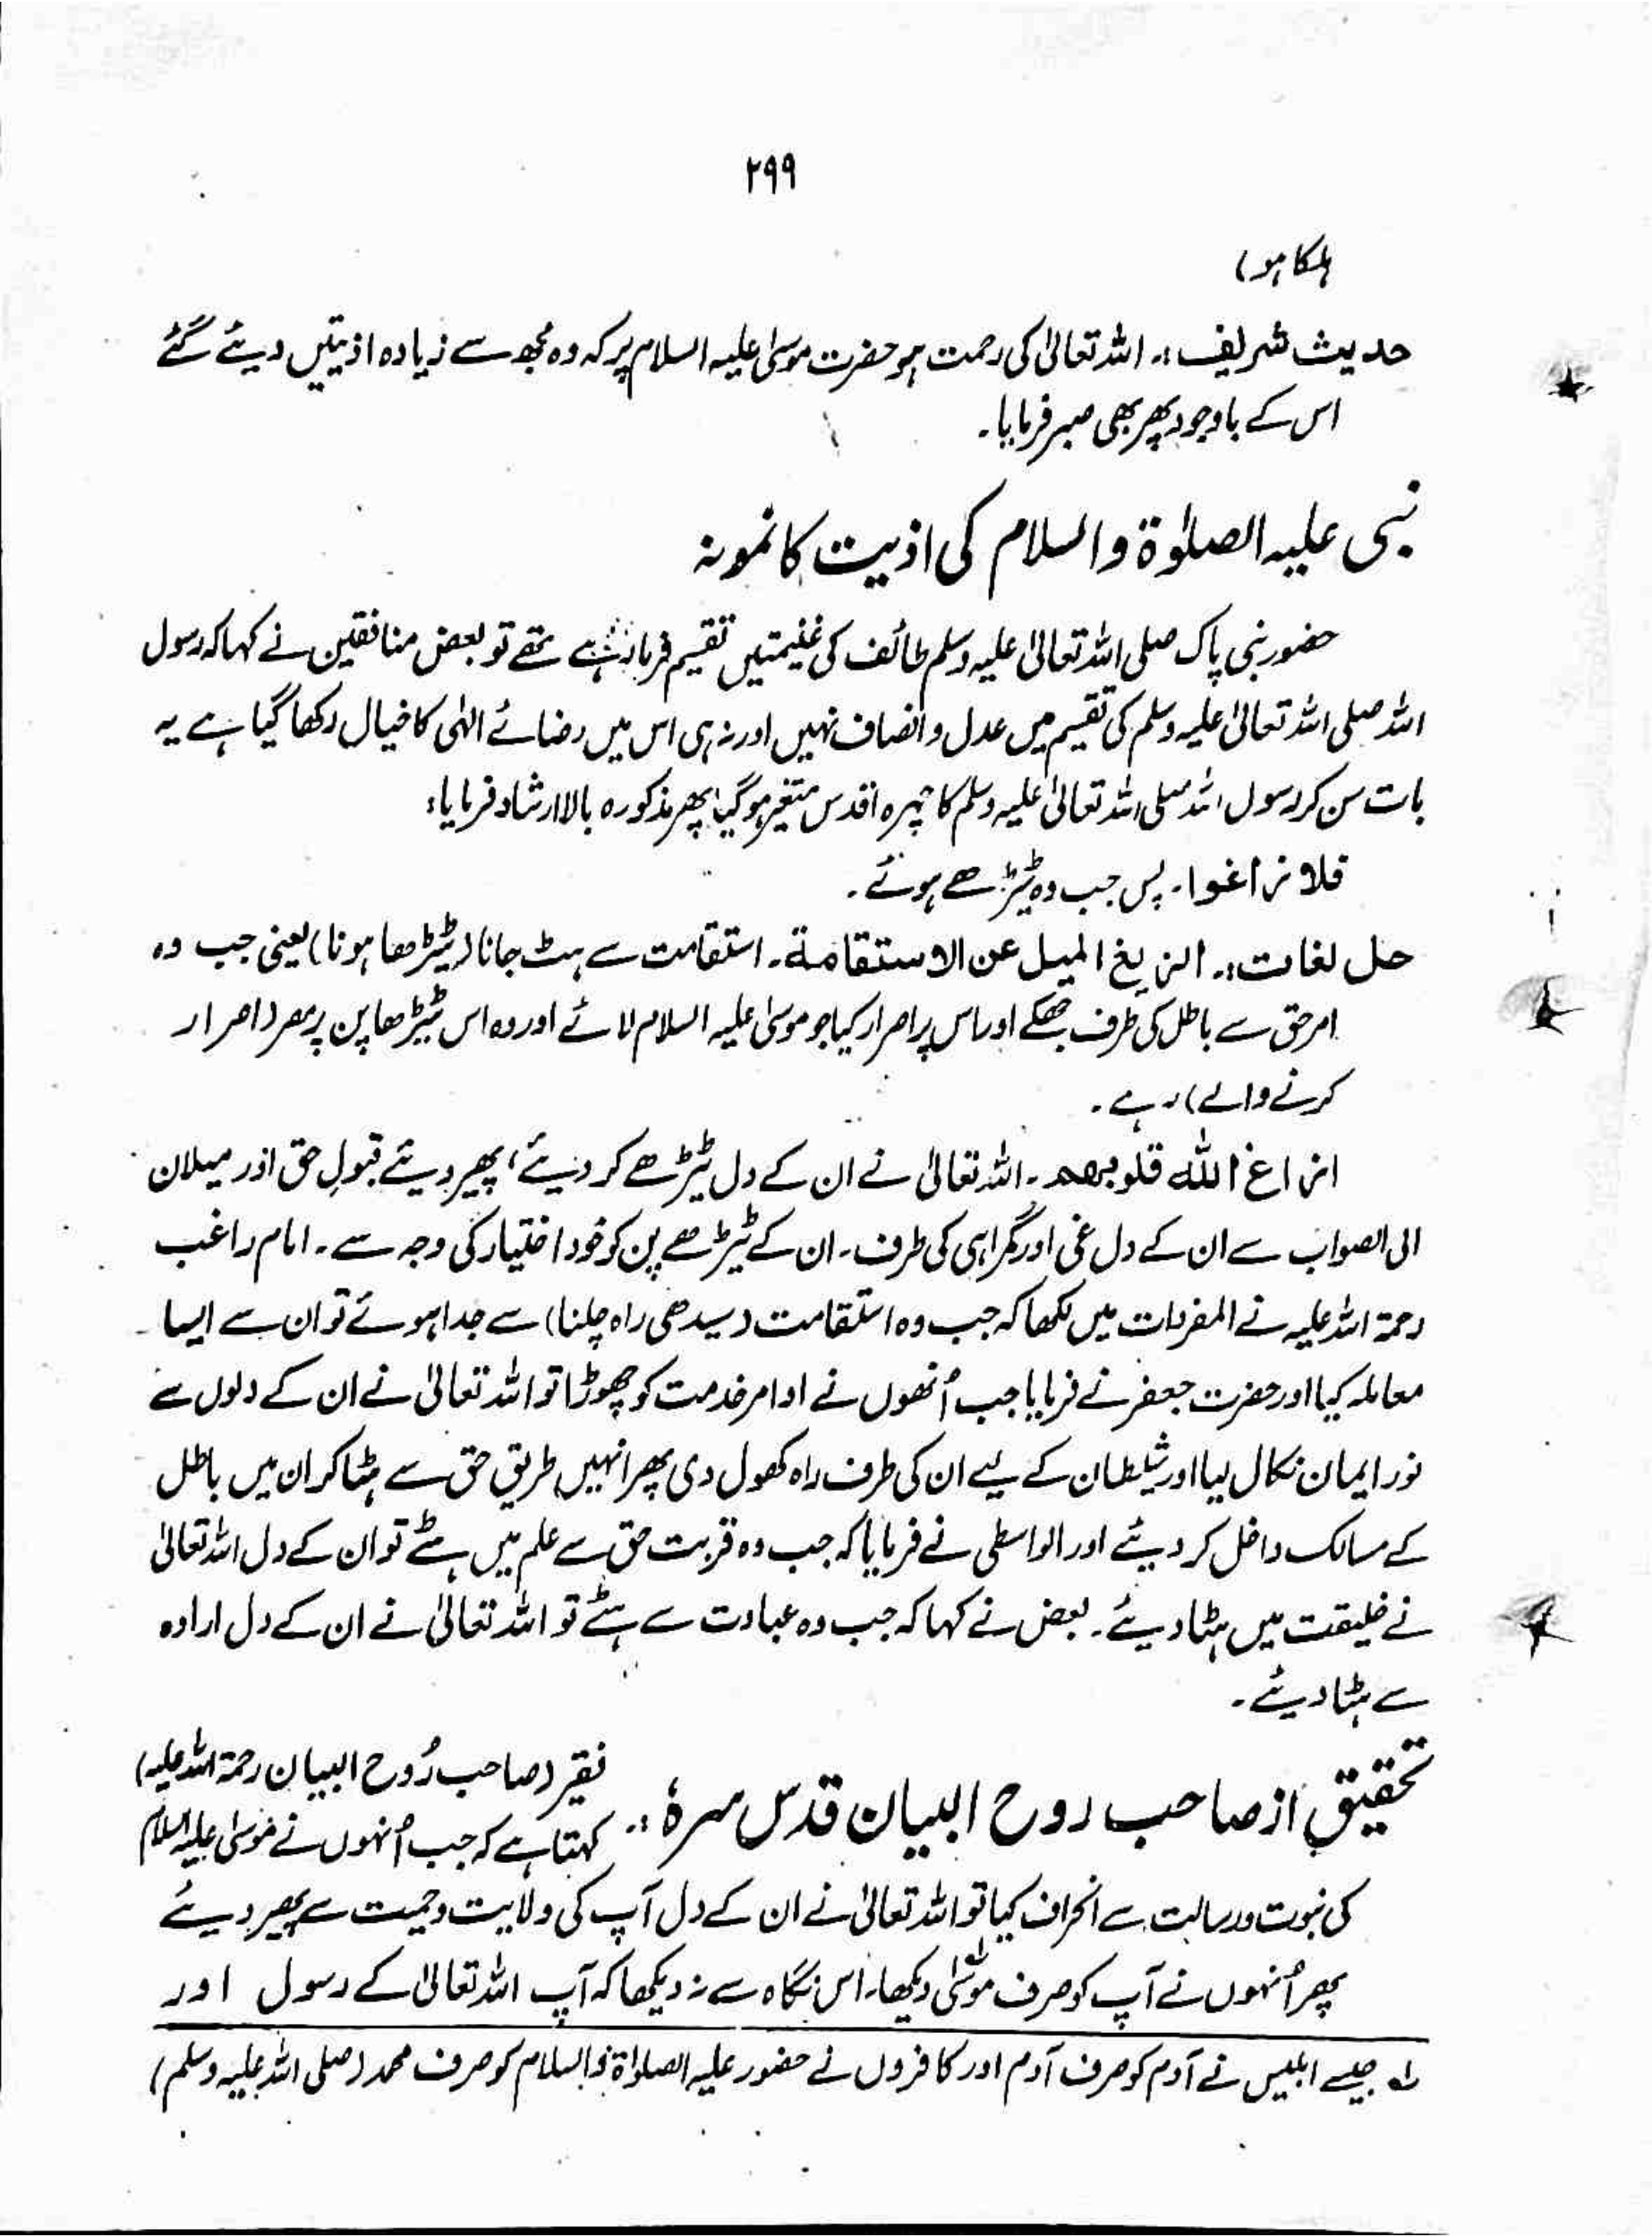 ۲۹۹
ہلکا ہو)
حدیث شریف :۔ اللہ تعالیٰ کی رحمت ہو حضرت موسیٰ علیہ السلام پر کہ وہ مجھ سے زیادہ اذیتیں دیئے گئے
اس کے باوجود پھر بھی صبر فرمایا۔
نبی علیہ الصلوٰۃ والسلام کی اذیت کا نمونہ
حضور نبی پاک صلی اللہ تعالیٰ علیہ وسلم طائف کی غنیمتیں تقسیم فرما رہے تھے تو بعض منافقین نے کہا کہ رسول
اللہ صلی اللہ تعالیٰ علیہ وسلم کی تقسیم میں عدل و انصاف نہیں اور نہ ہی اس میں رضائے الٰہی کا خیال رکھا گیا ہے یہ
بات سن کر رسول اللہ صلی اللہ تعالیٰ علیہ وسلم کا چہرہ اقدس متغیر ہو گیا پھر مذکورہ بالا ارشاد فرمایا:
فلا زاغوا۔ پس جب وہ ٹیڑھے ہوئے۔
حل لغات :۔ الزیغ المیل عن الاستقامۃ۔ استقامت سے ہٹ جانا (ٹیڑھا ہونا) یعنی جب وہ
امر حق سے باطل کی طرف جھکے اور اس پر اصرار کیا جو موسیٰ علیہ السلام لائے اور وہ اس ٹیڑھا پن پر مصر (اصرار
کرنے والے) رہے۔
ازاغ اللہ قلوبھم۔ اللہ تعالیٰ نے ان کے دل ٹیڑھے کر دیئے، پھیر دیئے قبولِ حق اور میلان
الی الصواب سے ان کے دل غی اور گمراہی کی طرف۔ ان کے ٹیڑھے پن کو خود اختیار کی وجہ سے۔ امام راغب
رحمۃ اللہ علیہ نے المفردات میں لکھا کہ جب وہ استقامت (سیدھی راہ چلنا) سے جدا ہوئے تو ان سے ایسا
معاملہ کیا اور حضرت جعفر نے فرمایا جب اُنھوں نے اوامر خدمت کو چھوڑا تو اللہ تعالیٰ نے ان کے دلوں سے
نور ایمان نکال لیا اور شیطان کے لیے ان کی طرف راہ کھول دی پھر انہیں طریق حق سے ہٹا کر ان میں باطل
کے مسالک داخل کر دیئے اور الواسطی نے فرمایا کہ جب وہ قربت حق سے علم میں ہٹے تو ان کے دل اللہ تعالیٰ
نے خلیقت میں ہٹا دیئے۔ بعض نے کہا کہ جب وہ عبادت سے ہٹے تو اللہ تعالیٰ نے ان کے دل ارادہ
سے ہٹا دیئے۔
تحقیق از صاحب روح البیان قدس سرہٗ :۔ فقیر (صاحب رُوح البیان رحمۃ اللہ علیہ)
کہتا ہے کہ جب اُنہوں نے موسیٰ علیہ السلام
کی نبوت و رسالت سے انحراف کیا تو اللہ تعالیٰ نے ان کے دل آپ کی ولایت و جمیت سے پھیر دیئے
پھر اُنہوں نے آپ کو صرف موسیٰ دیکھا۔ اس نگاہ سے نہ دیکھا کہ آپ اللہ تعالیٰ کے رسول اور
لہ جیسے ابلیس نے آدم کو صرف آدم اور کافروں نے حضور علیہ الصلوٰۃ والسلام کو صرف محمد (صلی اللہ علیہ وسلم)